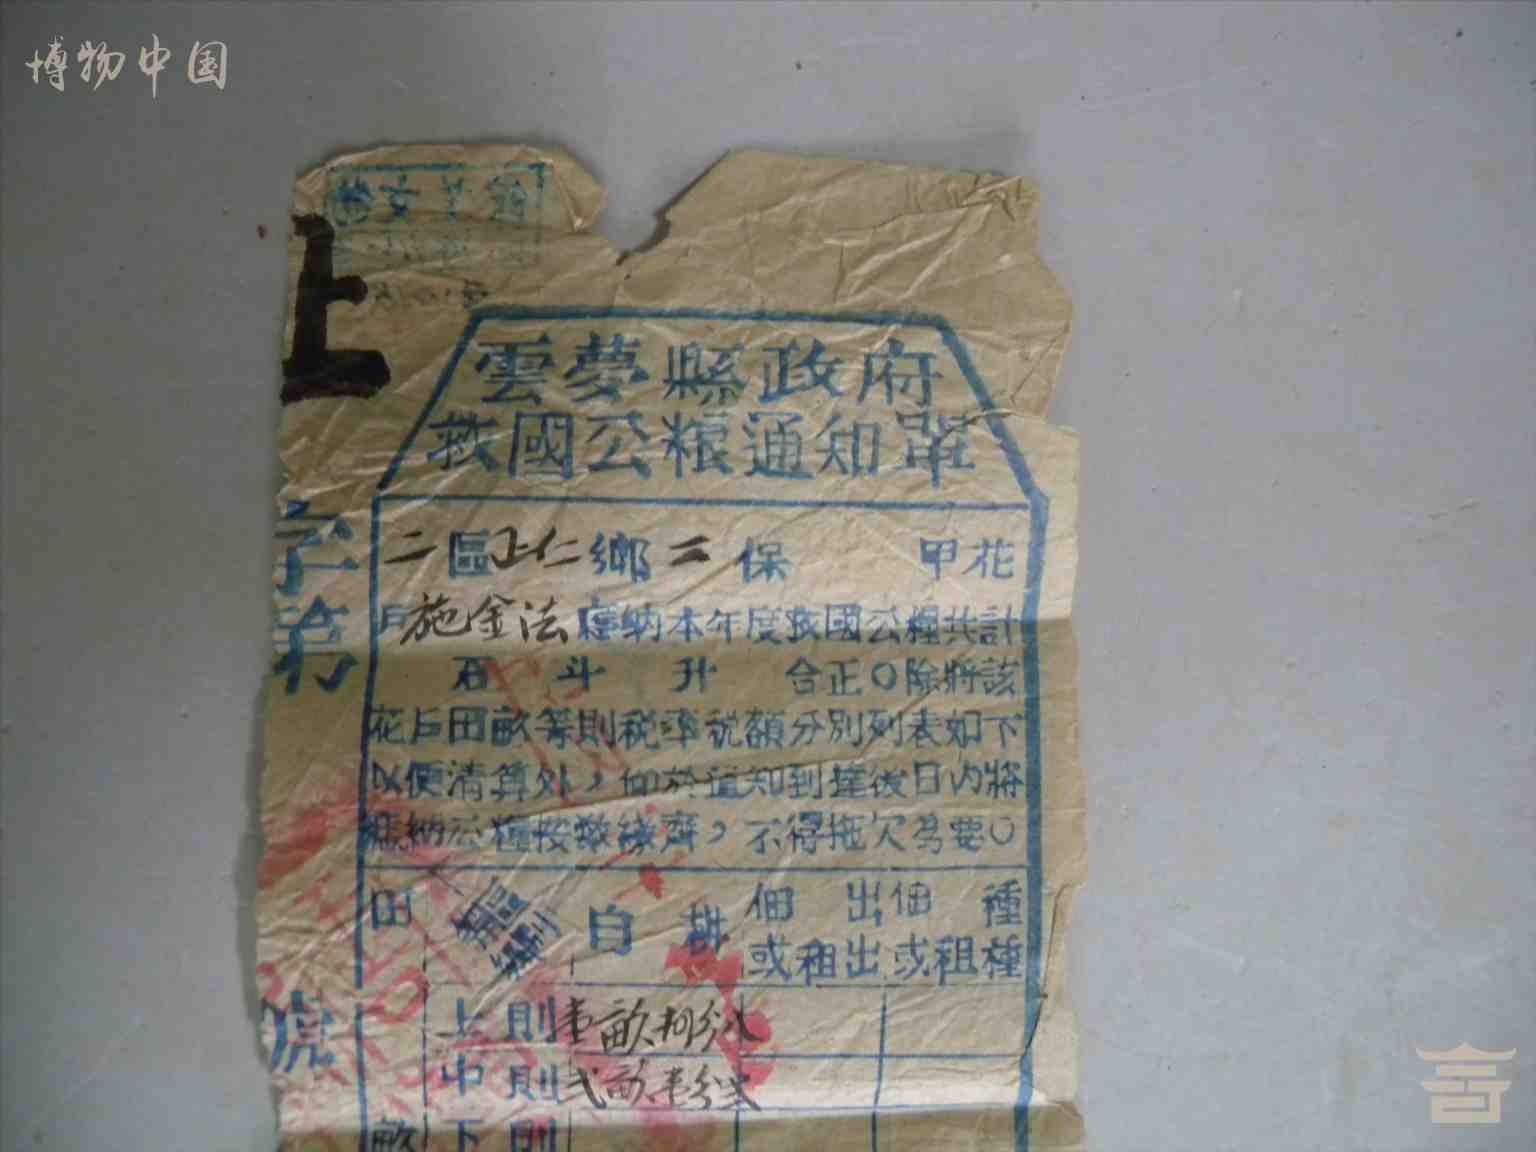 博物中国
上
雲夢縣政府
救國公粮通知單
字第
號
二區上仁鄉二保 甲花
戶施金法應納本年度救國公糧共計
石 斗 升 合正○除將該
花戶田畝等則税率税額分別列表如下
以便清算外，仰於通知到達後日内將
應納公糧按數繳齊，不得拖欠爲要○
田 等則 區別 自耕 佃出 佃種
或租出 或租種
上則 壹畝捌分
中則 弍畝
畝 下則